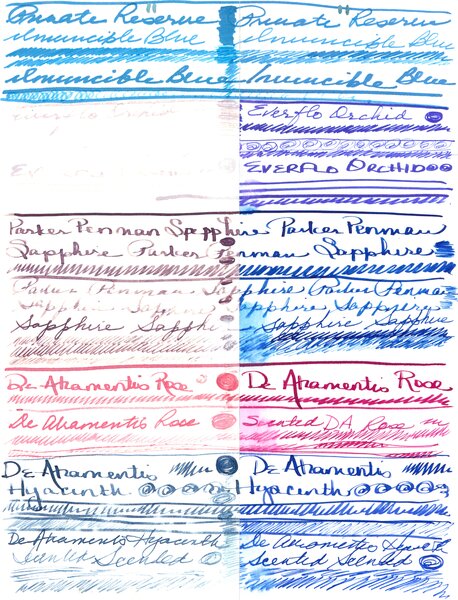 Private Reserve Private Reserve
Invincible Blue Invincible Blue
Invincible Blue Invincible Blue
Everflo Orchid
EVERFLO ORCHID
Parker Penman Sapphire Parker Penman
Sapphire Parker Penman Sapphire
Parker Penman Sapphire Parker Penman
Sapphire Sapphire Sapphire Sapphire
Sapphire Sapphi Sapphire Sapphire
De Atramentis Rose De Atramentis Rose
De Atramentis Rose Scented DA Rose
De Atramentis De Atramentis
Hyacinth Hyacinth
De Atramentis Hyacinth De Atramentis Hyacinth
Scented Scented Scented Scented